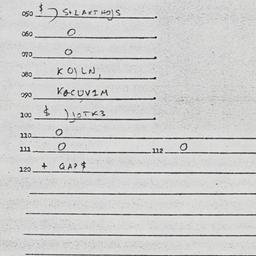 050 $ ) S+LAXTHO)S
060 O
070 O
080 KO)LN,
090 VACUV1M
100 $ ))OTK3
110 O
111 O 112 O
120 + GAP$